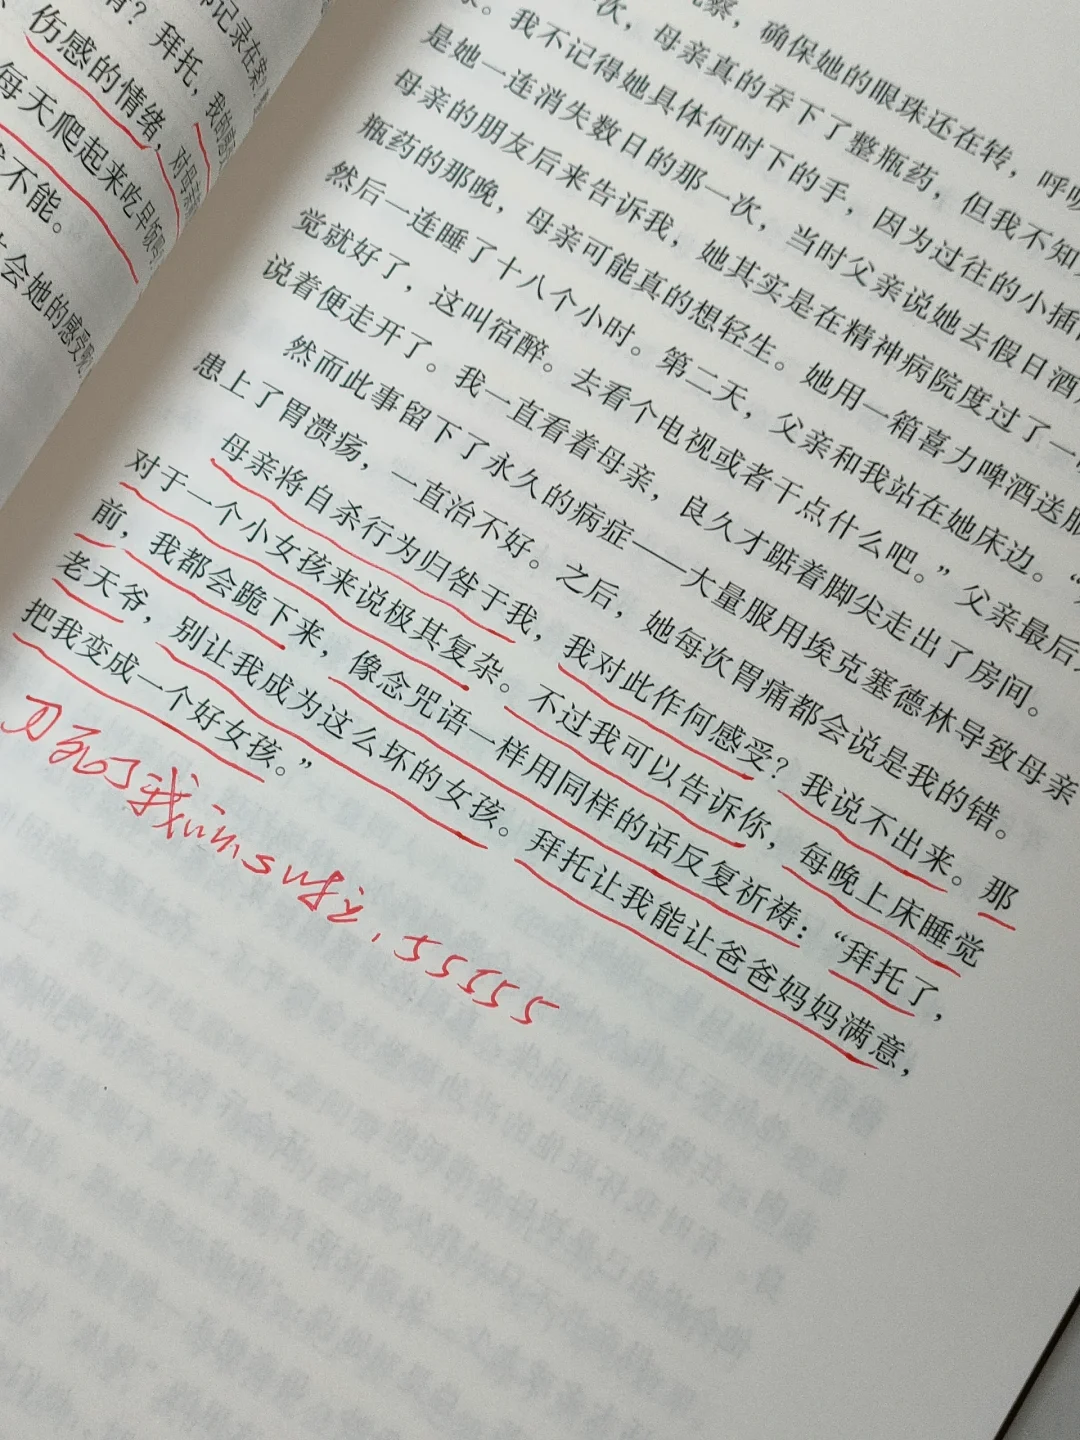 记录在案
？拜托，我的
伤感的情绪，对母亲
每天爬起来吃早饭吗
不能。
会她的感受
察，确保她的眼珠还在转，呼吸
次，母亲真的吞下了整瓶药，但我不知
。我不记得她具体何时下的手，因为过往的小插
是她一连消失数日的那一次，当时父亲说她去假日酒
母亲的朋友后来告诉我，她其实是在精神病院度过了一
瓶药的那晚，母亲可能真的想轻生。她用一箱喜力啤酒送服
然后一连睡了十八个小时。第二天，父亲和我站在她床边。“
觉就好了，这叫宿醉。去看个电视或者干点什么吧。”父亲最后
说着便走开了。我一直看着母亲，良久才踮着脚尖走出了房间。
然而此事留下了永久的病症——大量服用埃克塞德林导致母亲
患上了胃溃疡，一直治不好。之后，她每次胃痛都会说是我的错。
母亲将自杀行为归咎于我，我对此作何感受？我说不出来。那
对于一个小女孩来说极其复杂。不过我可以告诉你，每晚上床睡觉
前，我都会跪下来，像念咒语一样用同样的话反复祈祷：“拜托了，
老天爷，别让我成为这么坏的女孩。拜托让我能让爸爸妈妈满意，
把我变成一个好女孩。”
刀死了我，55555